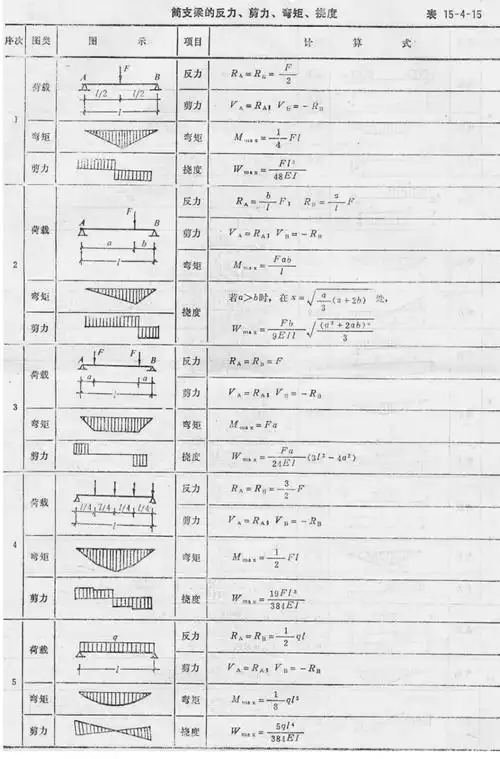 简支梁的反力、剪力、弯矩、挠度 表 15-4-15
序次 图类 图 示 项目 计 算 式
1 荷载 F A B l/2 l/2 l 反力 R_A=R_B=F/2
剪力 V_A=R_A; V_B=-R_B
弯矩 弯矩 M_max=1/4 Fl
剪力 挠度 W_max=Fl³/48EI
2 荷载 F A B a b l 反力 R_A=b/l F; R_B=a/l F
剪力 V_A=R_A; V_B=-R_B
弯矩 M_max=Fab/l
弯矩 挠度 若a>b时, 在 x=√(a/3 (a+2b)) 处,
剪力 W_max=Fb/9EIl √((a²+2ab)³/3)
3 荷载 F F A B a a l 反力 R_A=R_B=F
剪力 V_A=R_A; V_B=-R_B
弯矩 弯矩 M_max=Fa
剪力 挠度 W_max=Fa/24EI (3l²-4a²)
4 荷载 l/4 l/4 l/4 l/4 l 反力 R_A=R_B=3/2 F
剪力 V_A=R_A; V_B=-R_B
弯矩 弯矩 M_max=1/2 Fl
剪力 挠度 W_max=19Fl³/384EI
5 荷载 q l 反力 R_A=R_B=1/2 ql
剪力 V_A=R_A; V_B=-R_B
弯矩 弯矩 M_max=1/8 ql²
剪力 挠度 W_max=5ql⁴/384EI